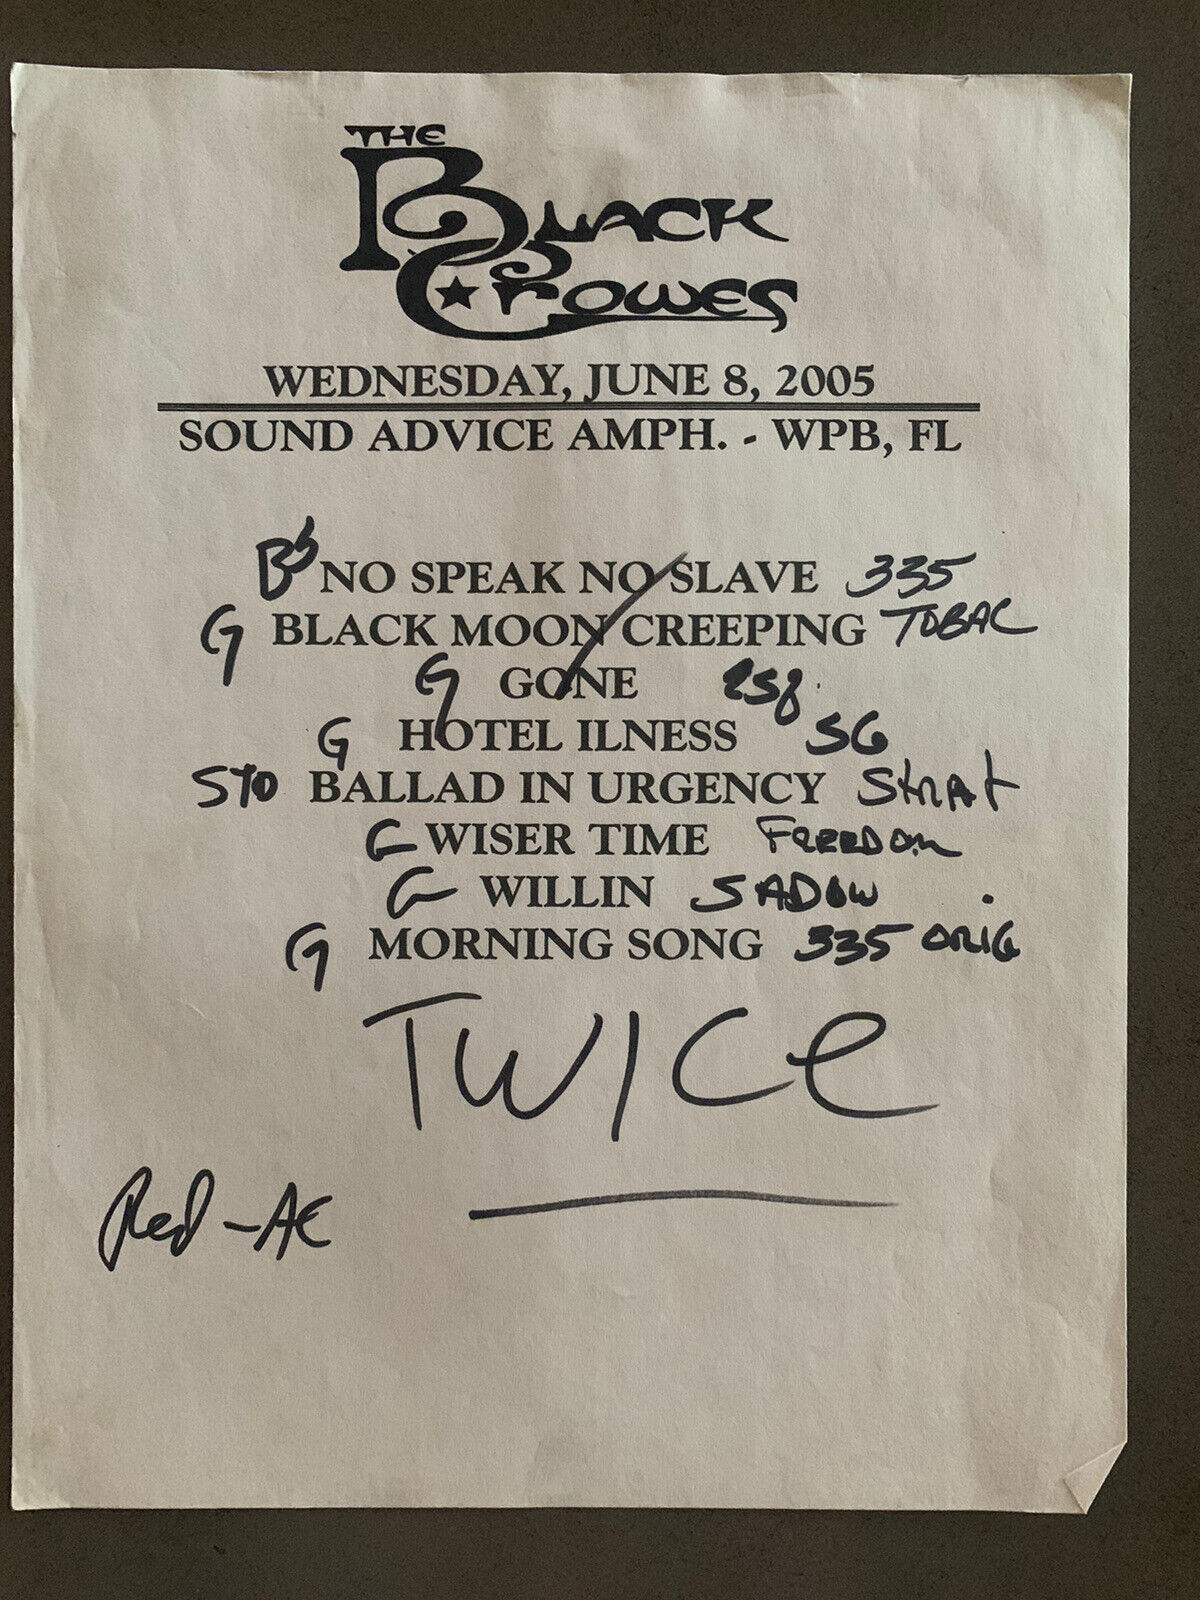 THE
BLACK
CROWES
WEDNESDAY, JUNE 8, 2005
SOUND ADVICE AMPH. - WPB, FL
NO SPEAK NO SLAVE 335
G BLACK MOON CREEPING TOBAC
G GONE
G HOTEL ILNESS SG
STD BALLAD IN URGENCY Strat
G WISER TIME FREEDOM
G WILLIN SADOW
G MORNING SONG 335 ORIG
TWICE
Red - AE